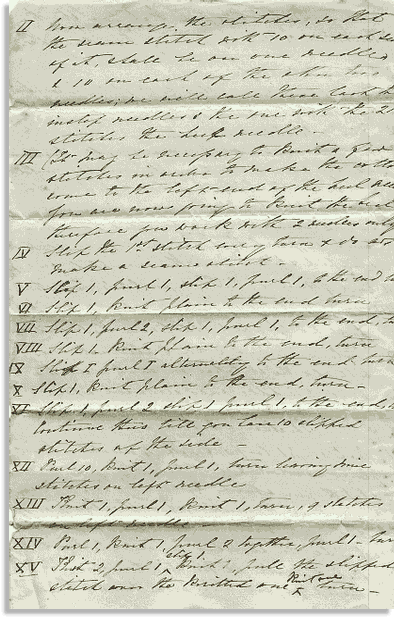 II Now arrange the stitches, so that
the seam stitch with 10 on each side
of it, shall be on one needle
& 10 on each of the other two
needles; we will call these both the
instep needles & the one with the 21
stitches the heel needle -
III It may be necessary to knit a few
stitches in order to make the cotton
come to the left end of the heel
you are now going to knit the heel
therefore you work with 2 needles only
IV Slip the 1st stitch every turn & do not
make a seam stitch -
V Slip 1, purl 1, slip 1, purl 1, to the end
VI Slip 1, knit plain to the end turn
VII Slip 1, purl 2, slip 1, purl 1, to the end,
VIII Slip 1, knit plain to the end, turn
IX Slip 1 purl 1 alternately to the end turn
X Slip 1, knit plain to the end, turn -
XI Slip 1, purl 2 slip 1 purl 1, to the end,
continue this till you have 10 slipped
stitches up the side -
XII Purl 10, Knit 1, purl 1, turn leaving nine
stitches on left needle
XIII Knit 1, purl 1, Knit 1, turn, 9 stitches
on left needle
XIV Purl 1, Knit 1, purl 2 together, purl 1 - turn
XV Knit 2, purl 1, slip 1, Knit 1, pull the slipped
stitch over the knitted one Knit one turn -